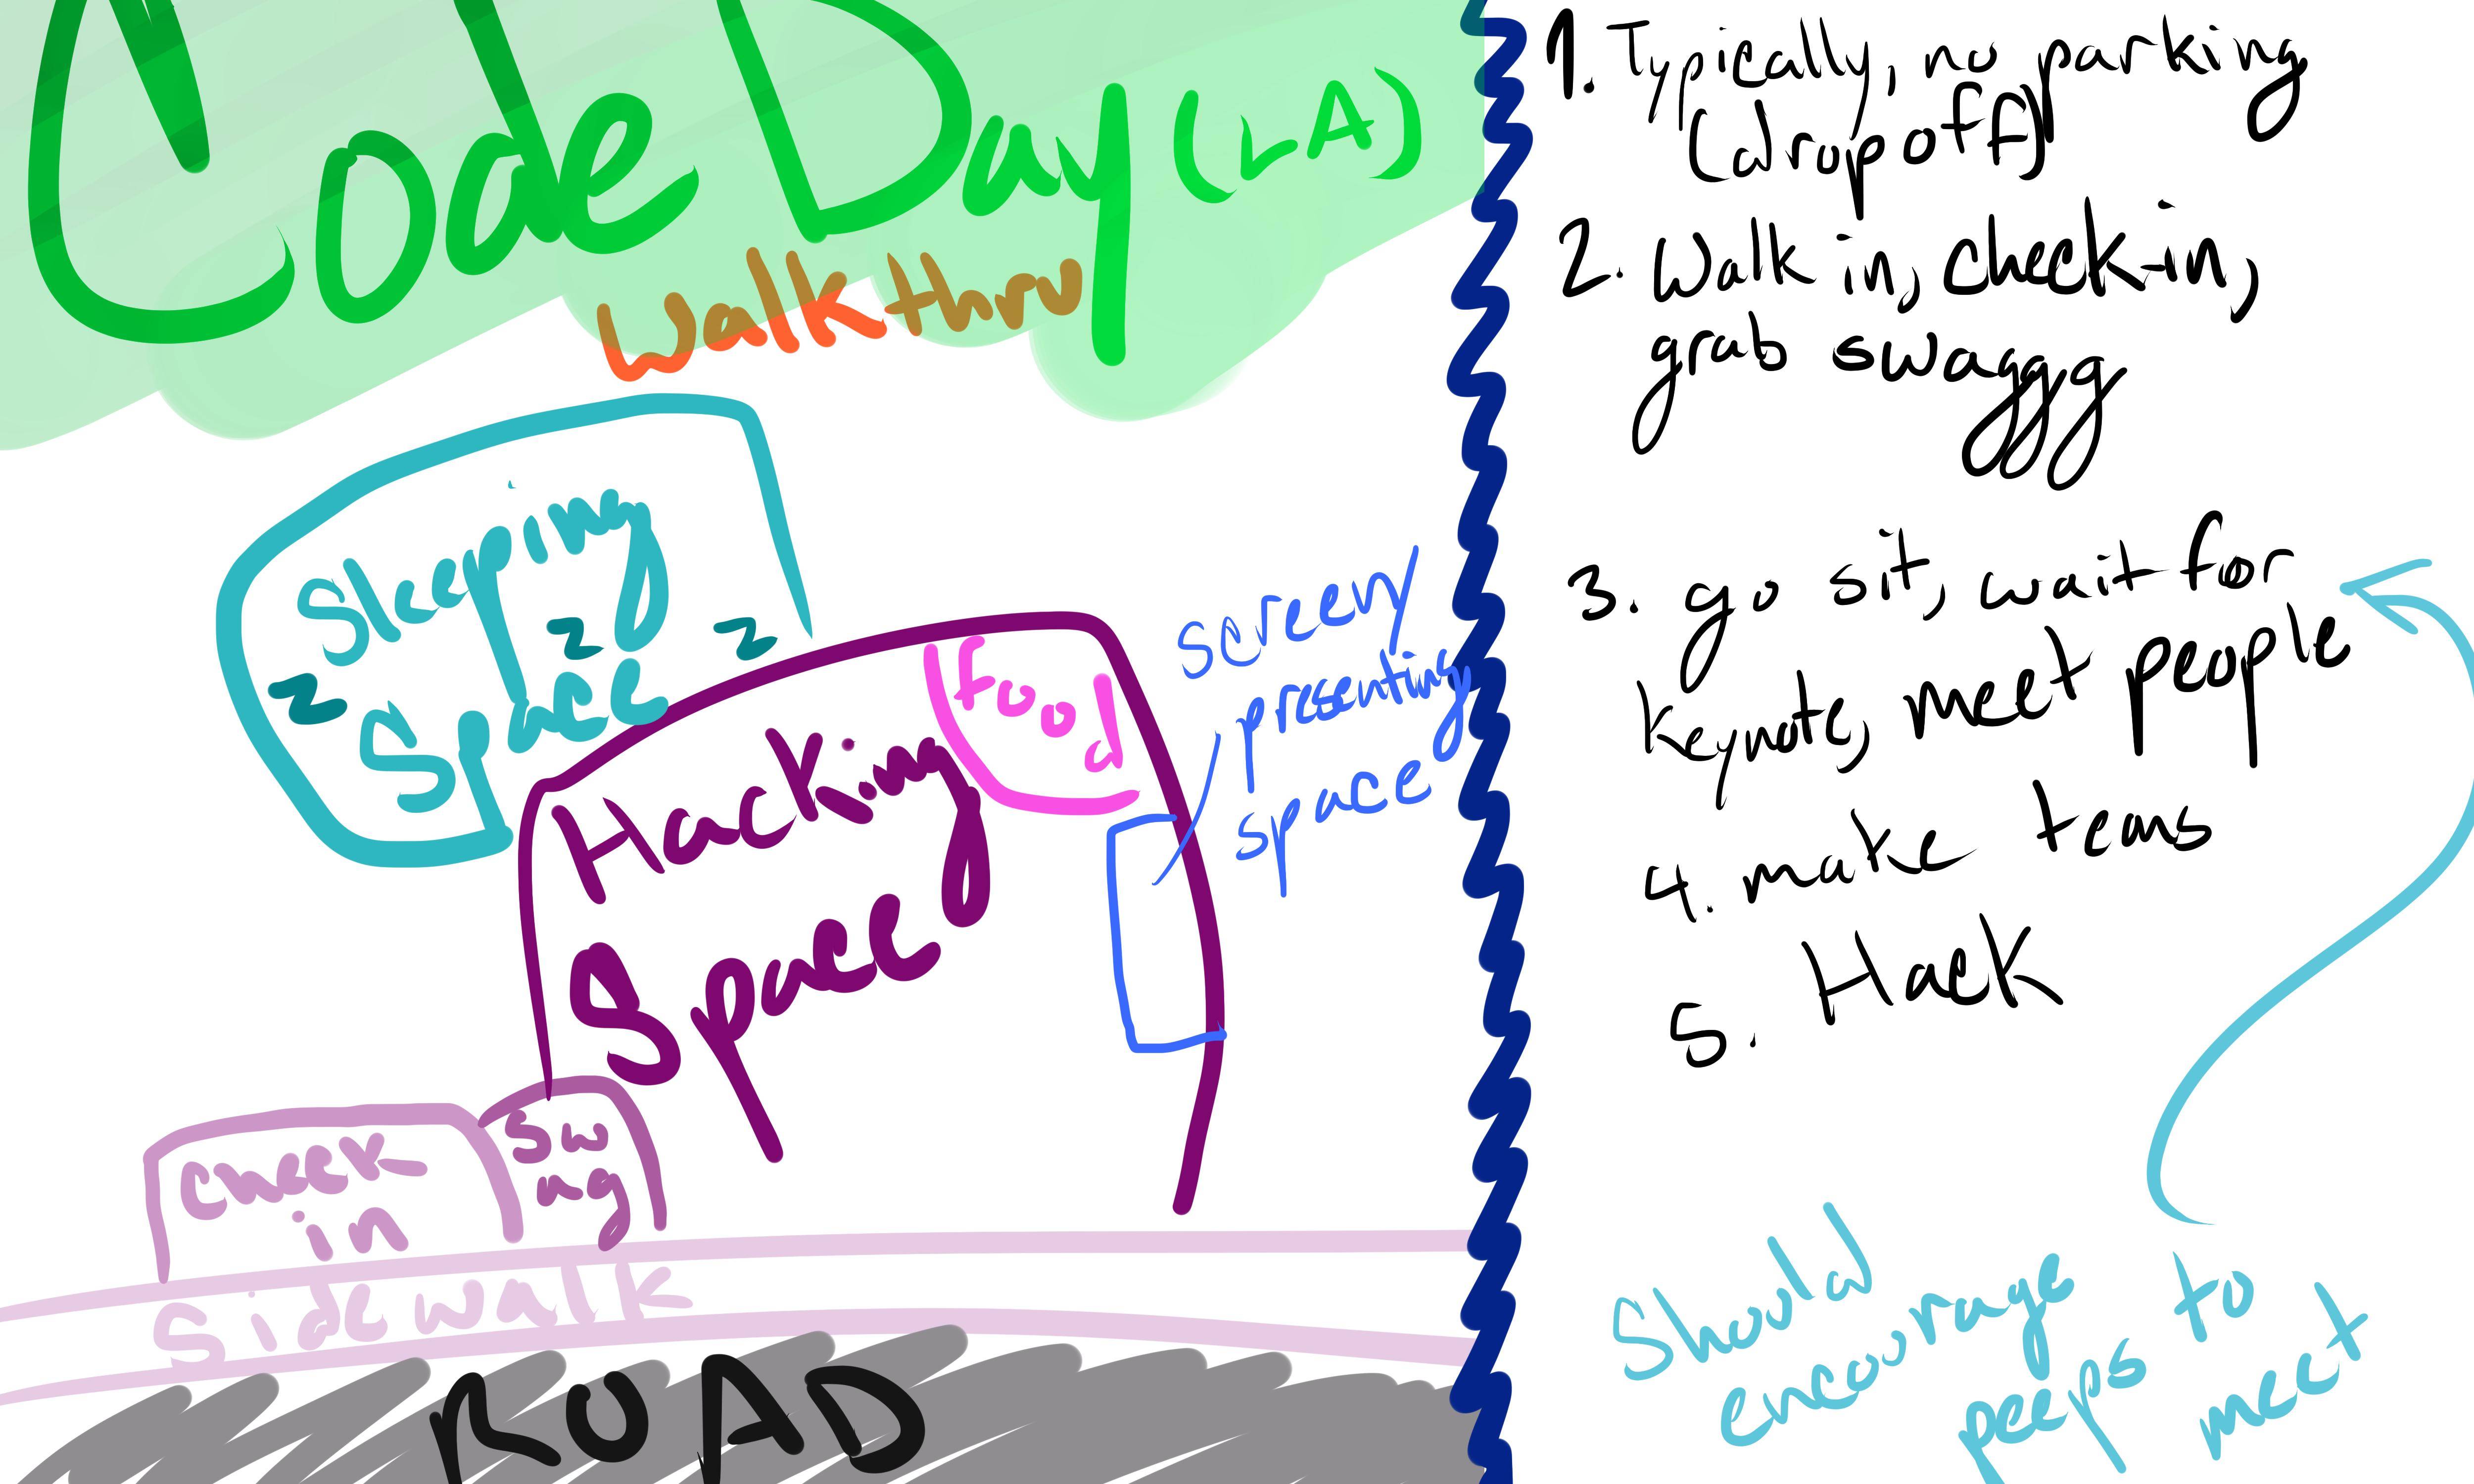 Code Day (LA)
Walk thru
Sleeping
z z z
Space
Hacking
Space
Food
screen/
presenting
space
check
in
Sw
ag
Sidewalk
ROAD
1. Typically, no parking
(drop off)
2. Walk in, check-in,
grab swaggg
3. go sit, wait for
keynote, meet people
4. make teams
5. Hack
Should
encourage
peeps to
meet